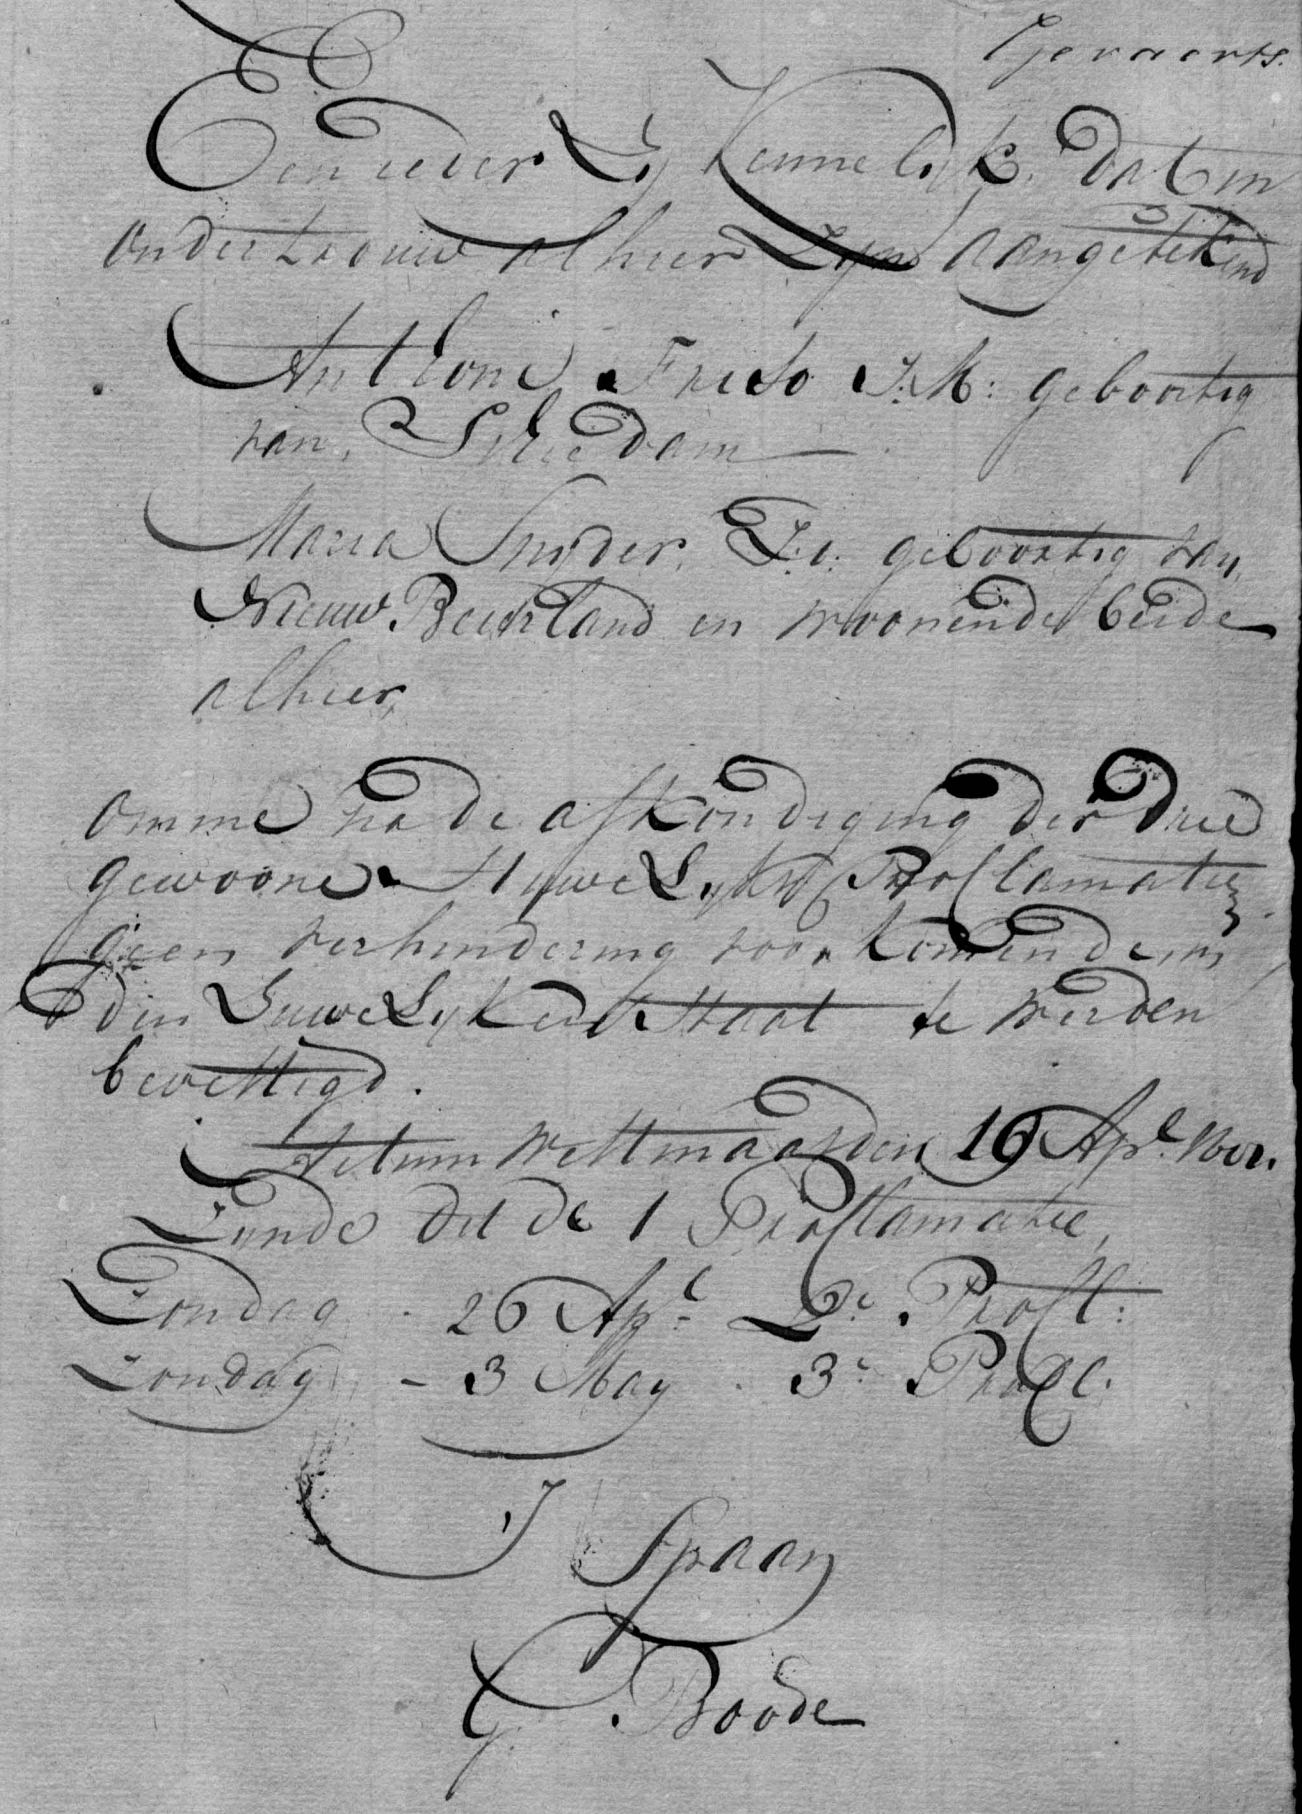 Geraerts.
Een ieder Zij Kennelijk, dat in
ondertrouw alhier Zijn aangetekend
Anthoni Freso J:M: geboortig
van, Schiedam
Maria Snijder, J:d: geboortig van
Nieuw Beierland en woonende beide
alhier,
omme na de afkondiging der drie
gewoone Huwelijks Proclamatie
geen verhindering voorkomende, in
den Huwelyken Staat te werden
bewettigd.
Actum Westmaas den 19 Apl.
Zynde dit de 1 Proclamatie,
Zondag - 26 Apl 2e. Procl:
Zondag, - 3 May. 3e Procl.
J Spaan
G. Boode